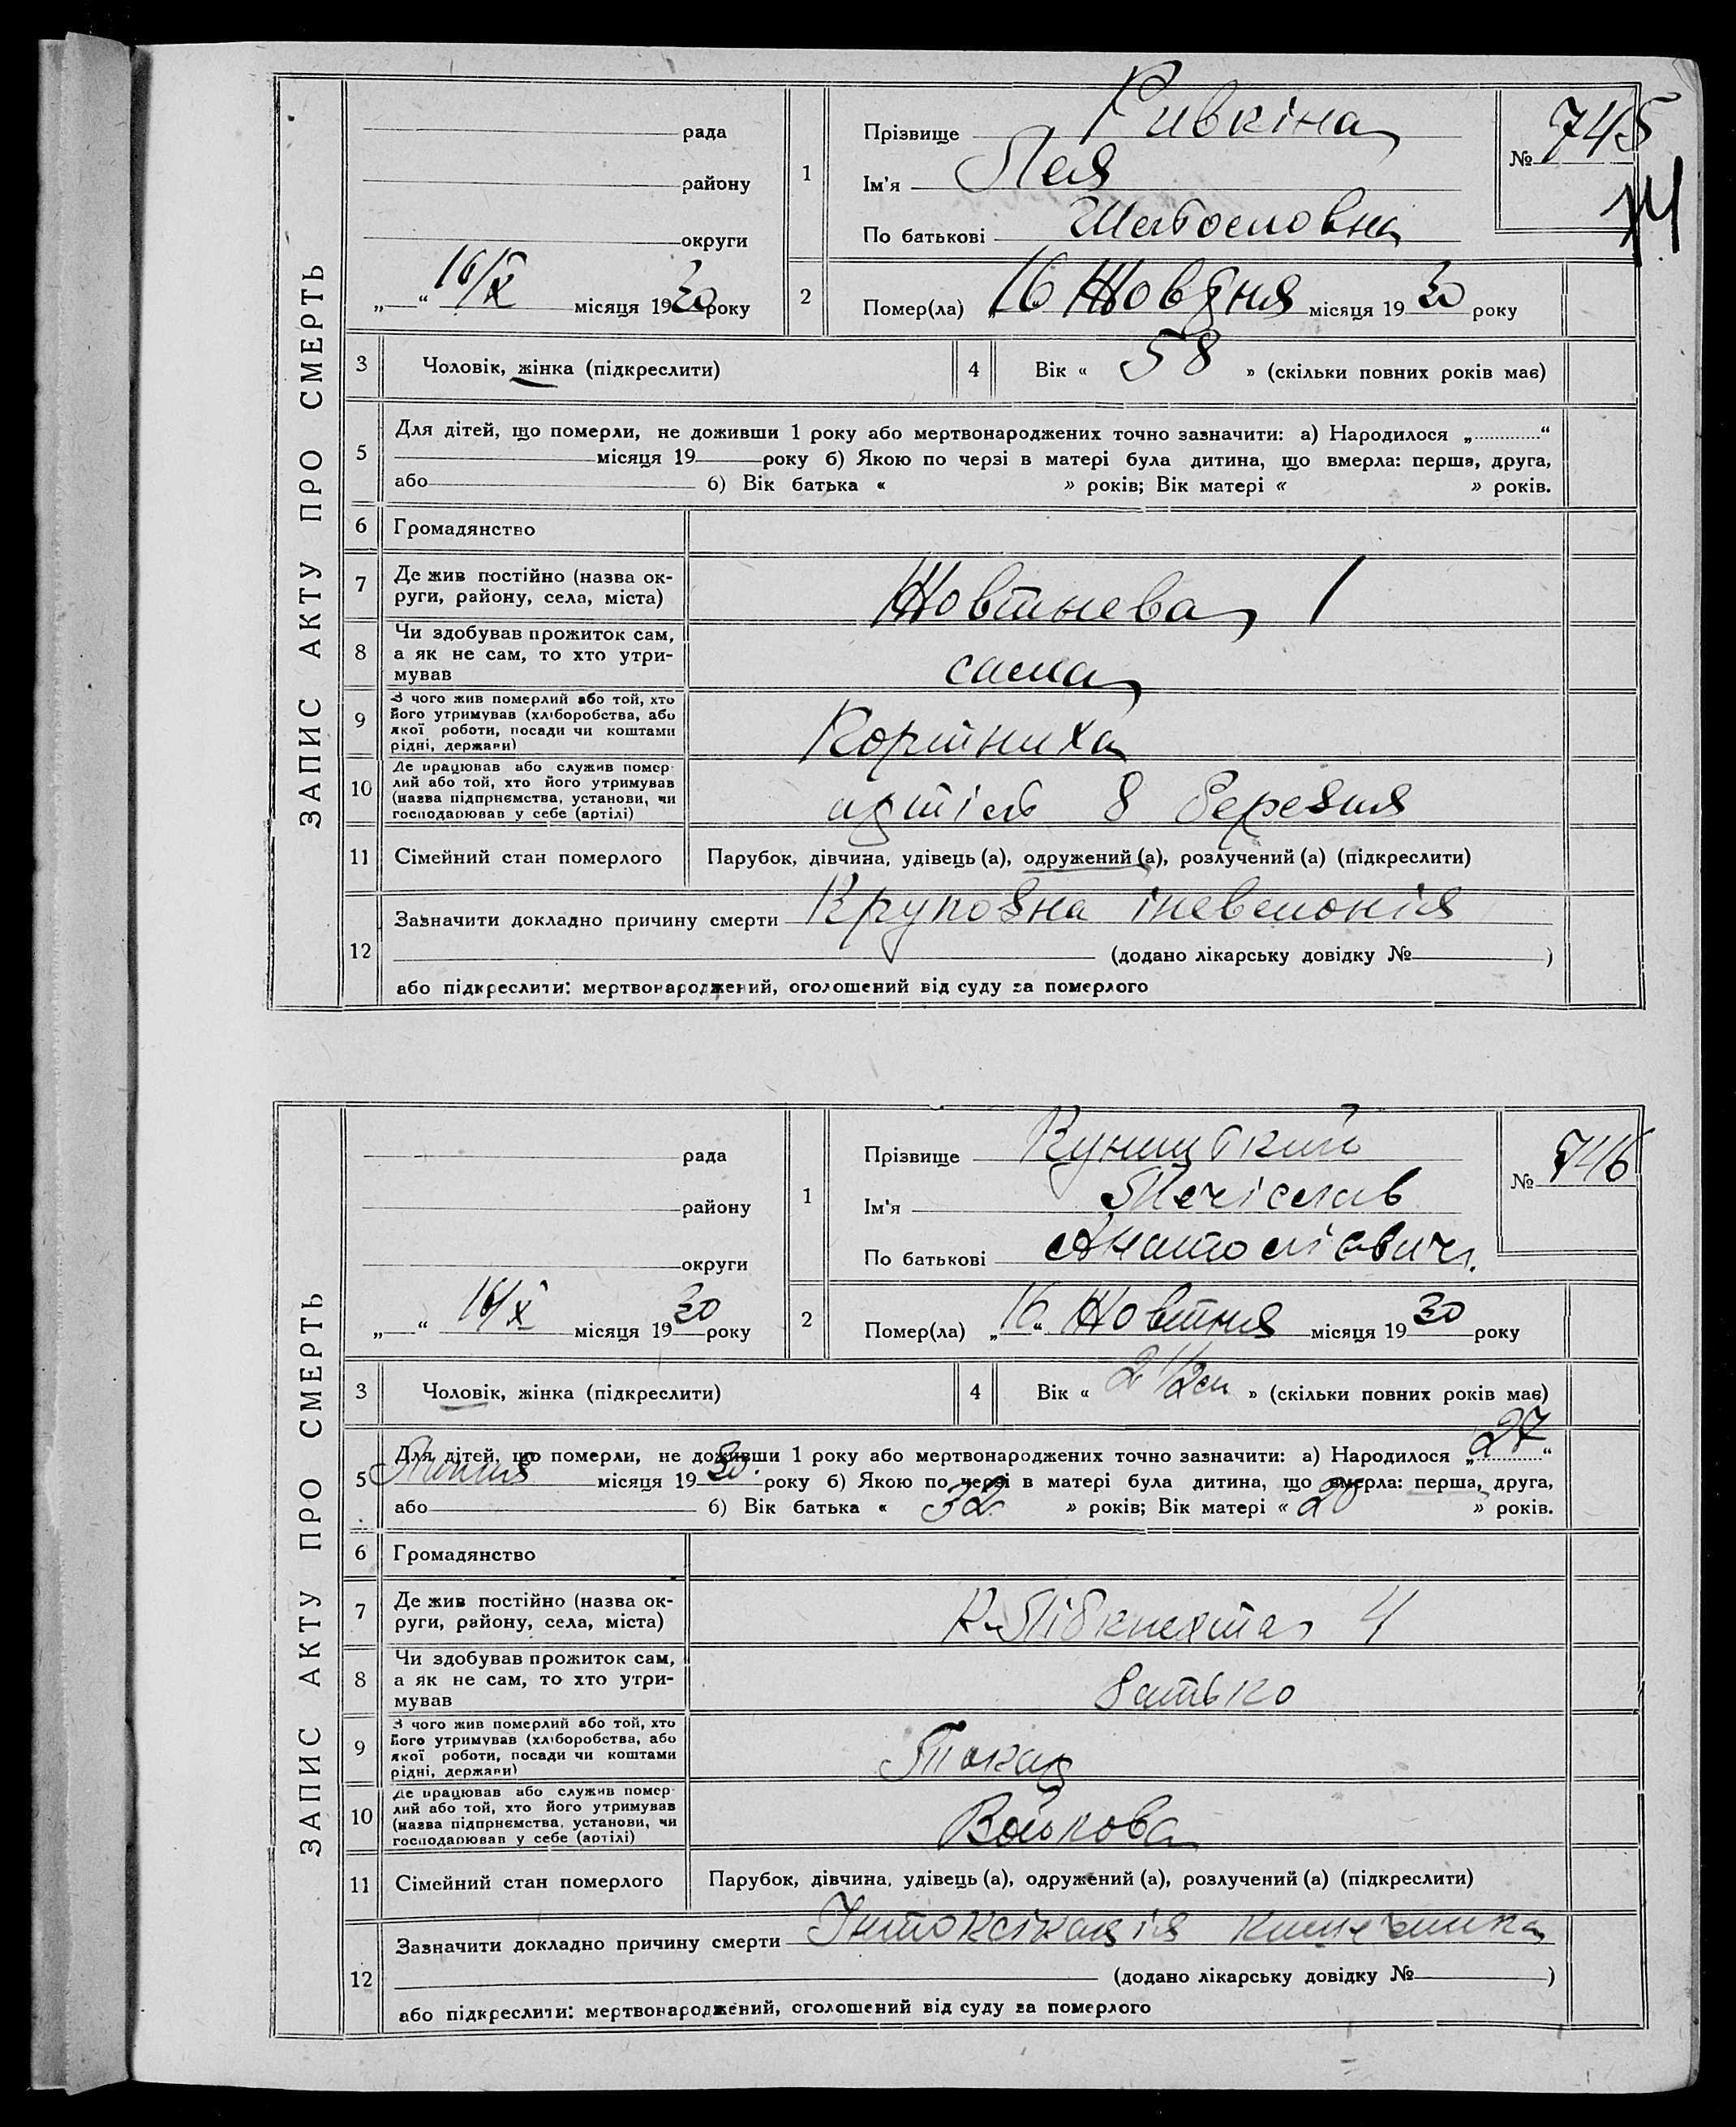 ЗАПИС АКТУ ПРО СМЕРТЬ
рада
району
округи
„ “ 16/X місяця 1930 року
1
Прізвище Ривкіна
Ім'я Лея
По батькові
№ 745
2
Помер(ла) „16“ Жовтня місяця 1930 року
3
Чоловік, жінка (підкреслити)
4
Вік « 58 » (скільки повних років має)
5
Для дітей, що померли, не доживши 1 року або мертвонароджених точно зазначити: а) Народилося „ “
місяця 19 року б) Якою по черзі в матері була дитина, що вмерла: перша, друга,
або б) Вік батька « » років; Вік матері « » років.
6
Громадянство
7
Де жив постійно (назва ок-
руги, району, села, міста)
Жовтнева 1
8
Чи здобував прожиток сам,
а як не сам, то хто утри-
мував
сама
9
З чого жив померлий або той, хто
його утримував (хліборобства, або
якої роботи, посади чи коштами
рідні, держави)
10
Де працював або служив помер-
лий або той, хто його утримував
(назва підприємства, установи, чи
господарював у себе (артілі)
артіль 8 березня
11
Сімейний стан померлого
Парубок, дівчина, удівець (а), одружений (а), розлучений (а) (підкреслити)
12
Зазначити докладно причину смерти Крупозна пневмонія
(додано лікарську довідку № )
або підкреслити: мертвонароджений, оголошений від суду за померлого
ЗАПИС АКТУ ПРО СМЕРТЬ
рада
району
округи
„ “ 16/X місяця 1930 року
1
Прізвище
Ім'я Мечіслав
По батькові Анатолієвич.
№ 746
2
Помер(ла) „16“ Жовтня місяця 1930 року
3
Чоловік, жінка (підкреслити)
4
Вік « 2 1/2 м » (скільки повних років має)
5
Для дітей, що померли, не доживши 1 року або мертвонароджених точно зазначити: а) Народилося „27“
Липня місяця 1930. року б) Якою по черзі в матері була дитина, що вмерла: перша, друга,
або б) Вік батька « 32 » років; Вік матері « 20 » років.
6
Громадянство
7
Де жив постійно (назва ок-
руги, району, села, міста)
К. Лібкнехта 4
8
Чи здобував прожиток сам,
а як не сам, то хто утри-
мував
батько
9
З чого жив померлий або той, хто
його утримував (хліборобства, або
якої роботи, посади чи коштами
рідні, держави)
Токар
10
Де працював або служив помер-
лий або той, хто його утримував
(назва підприємства, установи, чи
господарював у себе (артілі)
Войкова
11
Сімейний стан померлого
Парубок, дівчина, удівець (а), одружений (а), розлучений (а) (підкреслити)
12
Зазначити докладно причину смерти Інтоксікація кишечника
(додано лікарську довідку № )
або підкреслити: мертвонароджений, оголошений від суду за померлого